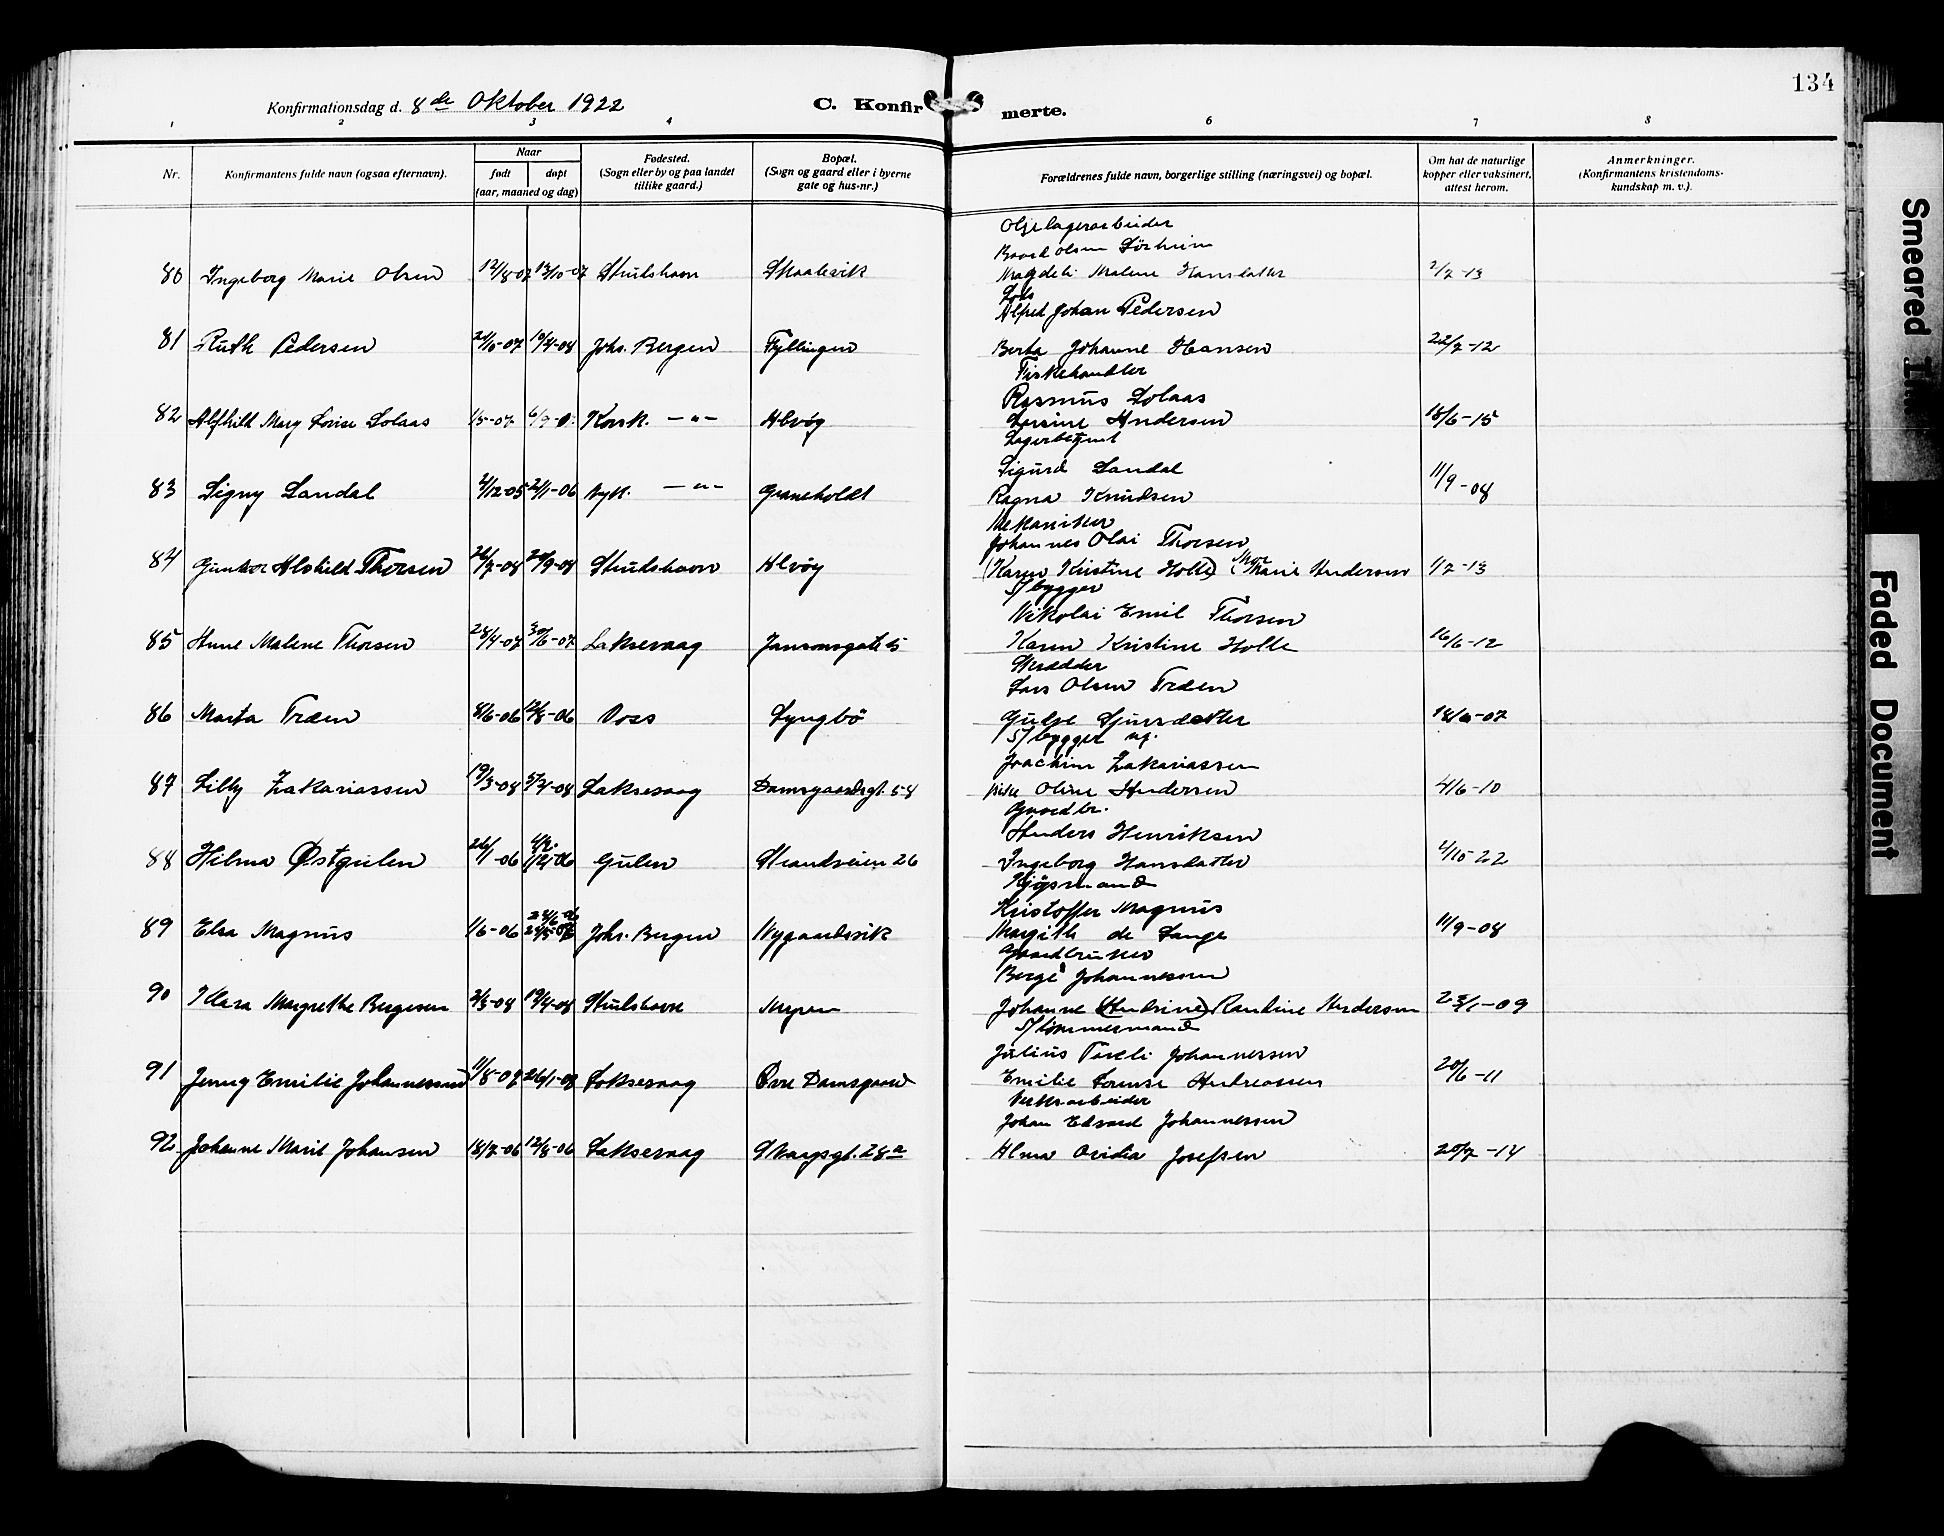 134
Konfirmationsdag d. 8de Oktober 1922 C. Konfirmerte.
1 2 3 4 6 7 8
Nr. Konfirmantens fulde navn (ogsaa efternavn). Naar født døpt (aar, maaned og dag) Fødested. (Sogn eller by og paa landet tillike gaard.) Bopæl. (Sogn og gaard eller i byerne gate og hus-nr.) Forældrenes fulde navn, borgerlige stilling (næringsvei) og bopæl. Om hat de naturlige kopper eller vaksinert, attest herom. Anmerkninger. (Konfirmantens kristendomskundskap m. v.).
Oljelagerarbeider
80 Ingeborg Marie Olsen 12/8-07 13/10-07 Skulshavn Skaalevik Malene Hansdatter
Lods
Alfred Johan Pedersen
81 Ruth Pedersen 19/4-08 Johs. Bergen Fyllingen Berta Johanne Hansen 22/7-12
Fiskehandler
Rasmus Solaas
82 Alfhild Mary Lovise Solaas 1/5-07 Korsk. —"— Alvøy Andersen 18/6-15
Lagerbetjent
Sigurd Sandal
83 Signy Sandal 2/12-05 2/1-06 Nyk. —"— Graneholdt Ragna Knudsen 11/9-08
Mekaniker
Johannes Olai Thorsen
84 Gunvor Alvhild Thorsen 26/7-08 20/9-08 Skulshavn Alvøy (Karen Kristine Holte) Mor Marie Andersen 1/7-13
S/bygger
Nikolai Emil Thorsen
85 Anne Malene Thorsen 28/4-07 30/6-07 Laksevaag Jansonsgate 5 Karen Kristine Holte 16/6-12
Skrædder
Lars Olsen Træen
86 Marta Træen 8/6-06 12/8-06 Voss Lyngbø Sjursdatter 18/6-07
S/bygger
Joachim Zakariassen
87 Lilly Zakariassen 19/3-08 5/4-08 Laksevaag Damsgaardsgt. 58 Oline Andersen 4/6-10
Gaardbr.
Anders Henriksen
88 Hilma Østgulen 26/1-06 Gulen Strandveien 26 Ingeborg Hansdatter 4/10-22
Kjøpmand
Kristoffer Magnus
89 Elsa Magnus 1/6-06 Johs. Bergen Nygaardsvik Margith de Lange 11/9-08
Gaardbruker
Berge Johannessen
90 Klara Margrethe Bergesen 2/3-08 19/4-08 Skulshavn Johanne (Andrine) Randine Andersen 23/1-09
S/tømmermand
Julius Johannessen
91 Jenny Emilie Johannessen 11/8-07 Laksevaag Øvre Damsgaard Emilie Lovise Andreassen 20/6-11
Verksarbeider
Johan Edvard Johannessen
92 Johanne Marie Johansen 18/7-06 12/8-06 Laksevaag Skaagsgt. 28a Alma Ovidia Josefsen 20/7-14
Smeared
Faded Document